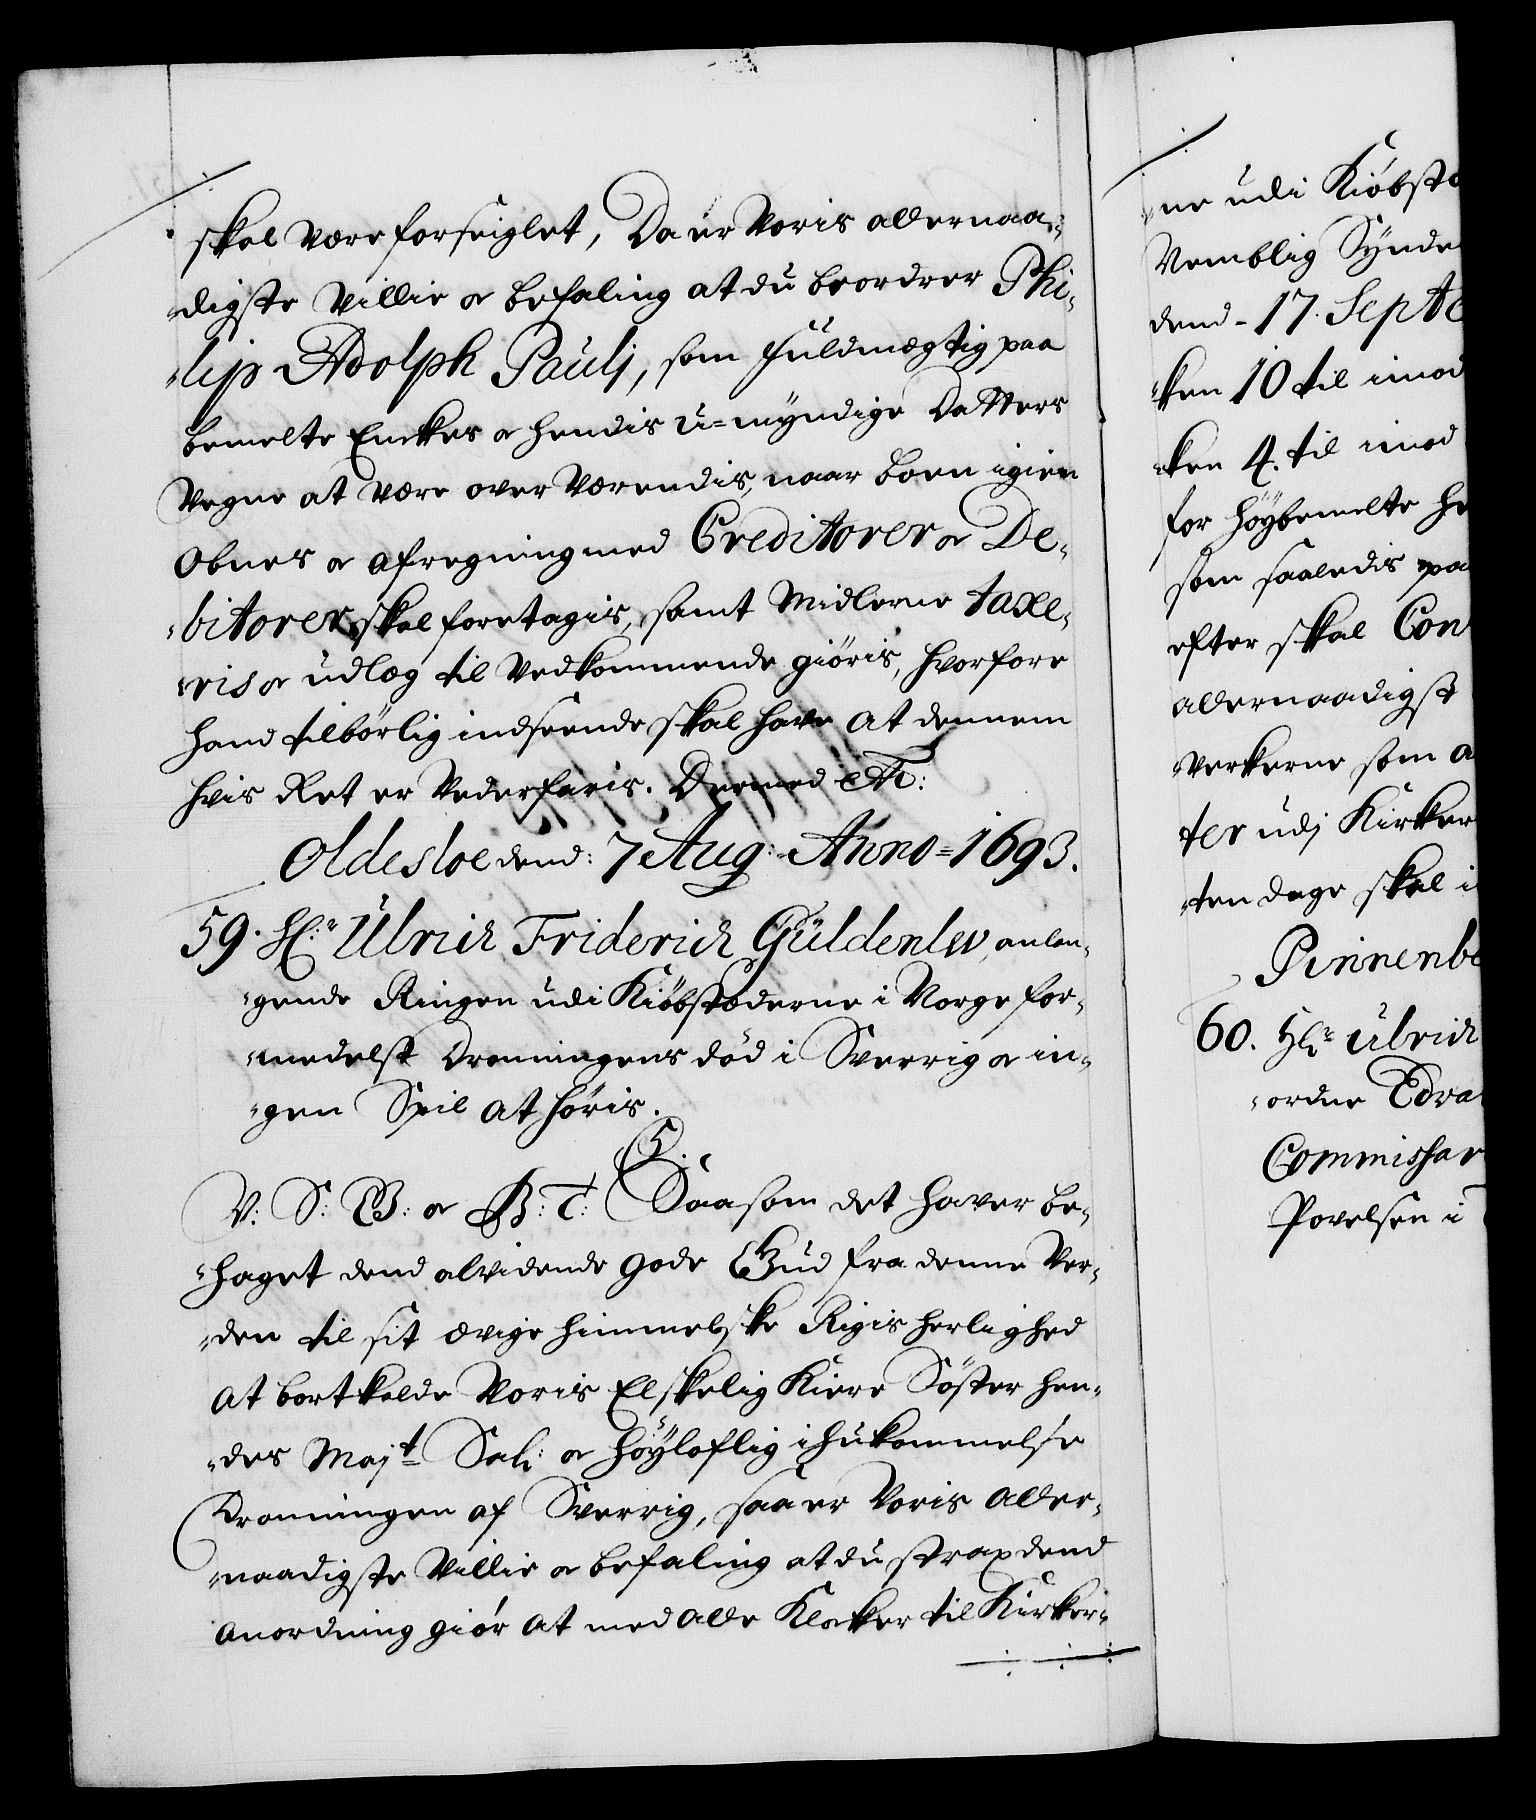 skal være forseiglet, Da er Voris allernaa-
digste Villie oc befaling at du beordrer Phi-
lip Adolph Paulj, som fuldmegtig paa
bemelte Enckes oc hendis u-myndige Datters
Vegne at være over Værendis, naar boen igien
obnes oc afregning med Creditorer oc De-
bitorer skal foretagis, samt Midlerne taxe-
ris oc udlæg til Vedkommende giöris, hvorfore
hand tilbörlig indseende skal have at dennem
hvis Ret er Vederfaris. Dermed etc:
Oldesloe dend: 7 Aug: Anno 1693.
59. Hr: Ulrich Friderich Güldenlew, anlan-
gende Ringen udi Kiöbstæderne i Norge for-
medelst Dronningens död i Sverrig oc in-
gen Spil at höris.
C5.
V: S: B: oc B: T: Saasom det haver be-
haget dend alvidende gode Gud fra denne Ver-
den til sit ævige himmelske Rigis herlighed
at bortkalde Voris Elskelig Kiere Söster hen-
des Majt Sal: oc höyloflig ihukommelse
Dronningen af Sverrig, saa er Voris aller-
naadigste Villie oc befaling at du strax dend
anordning giör at med alle Klocker til Kirker-
ne udi Kiöbst
Nemblig Synde
dend 17. Septe
ken 10 til imod
ken 4. til imod
for höybemelte
som saaledis
efter skal Con
allernaadigst
verkerne som a
ter udj Kirker
ten dage skal i
Pinnenbe
60. Hr Ulrich
ordne Edva
Commissar
Povelsen i